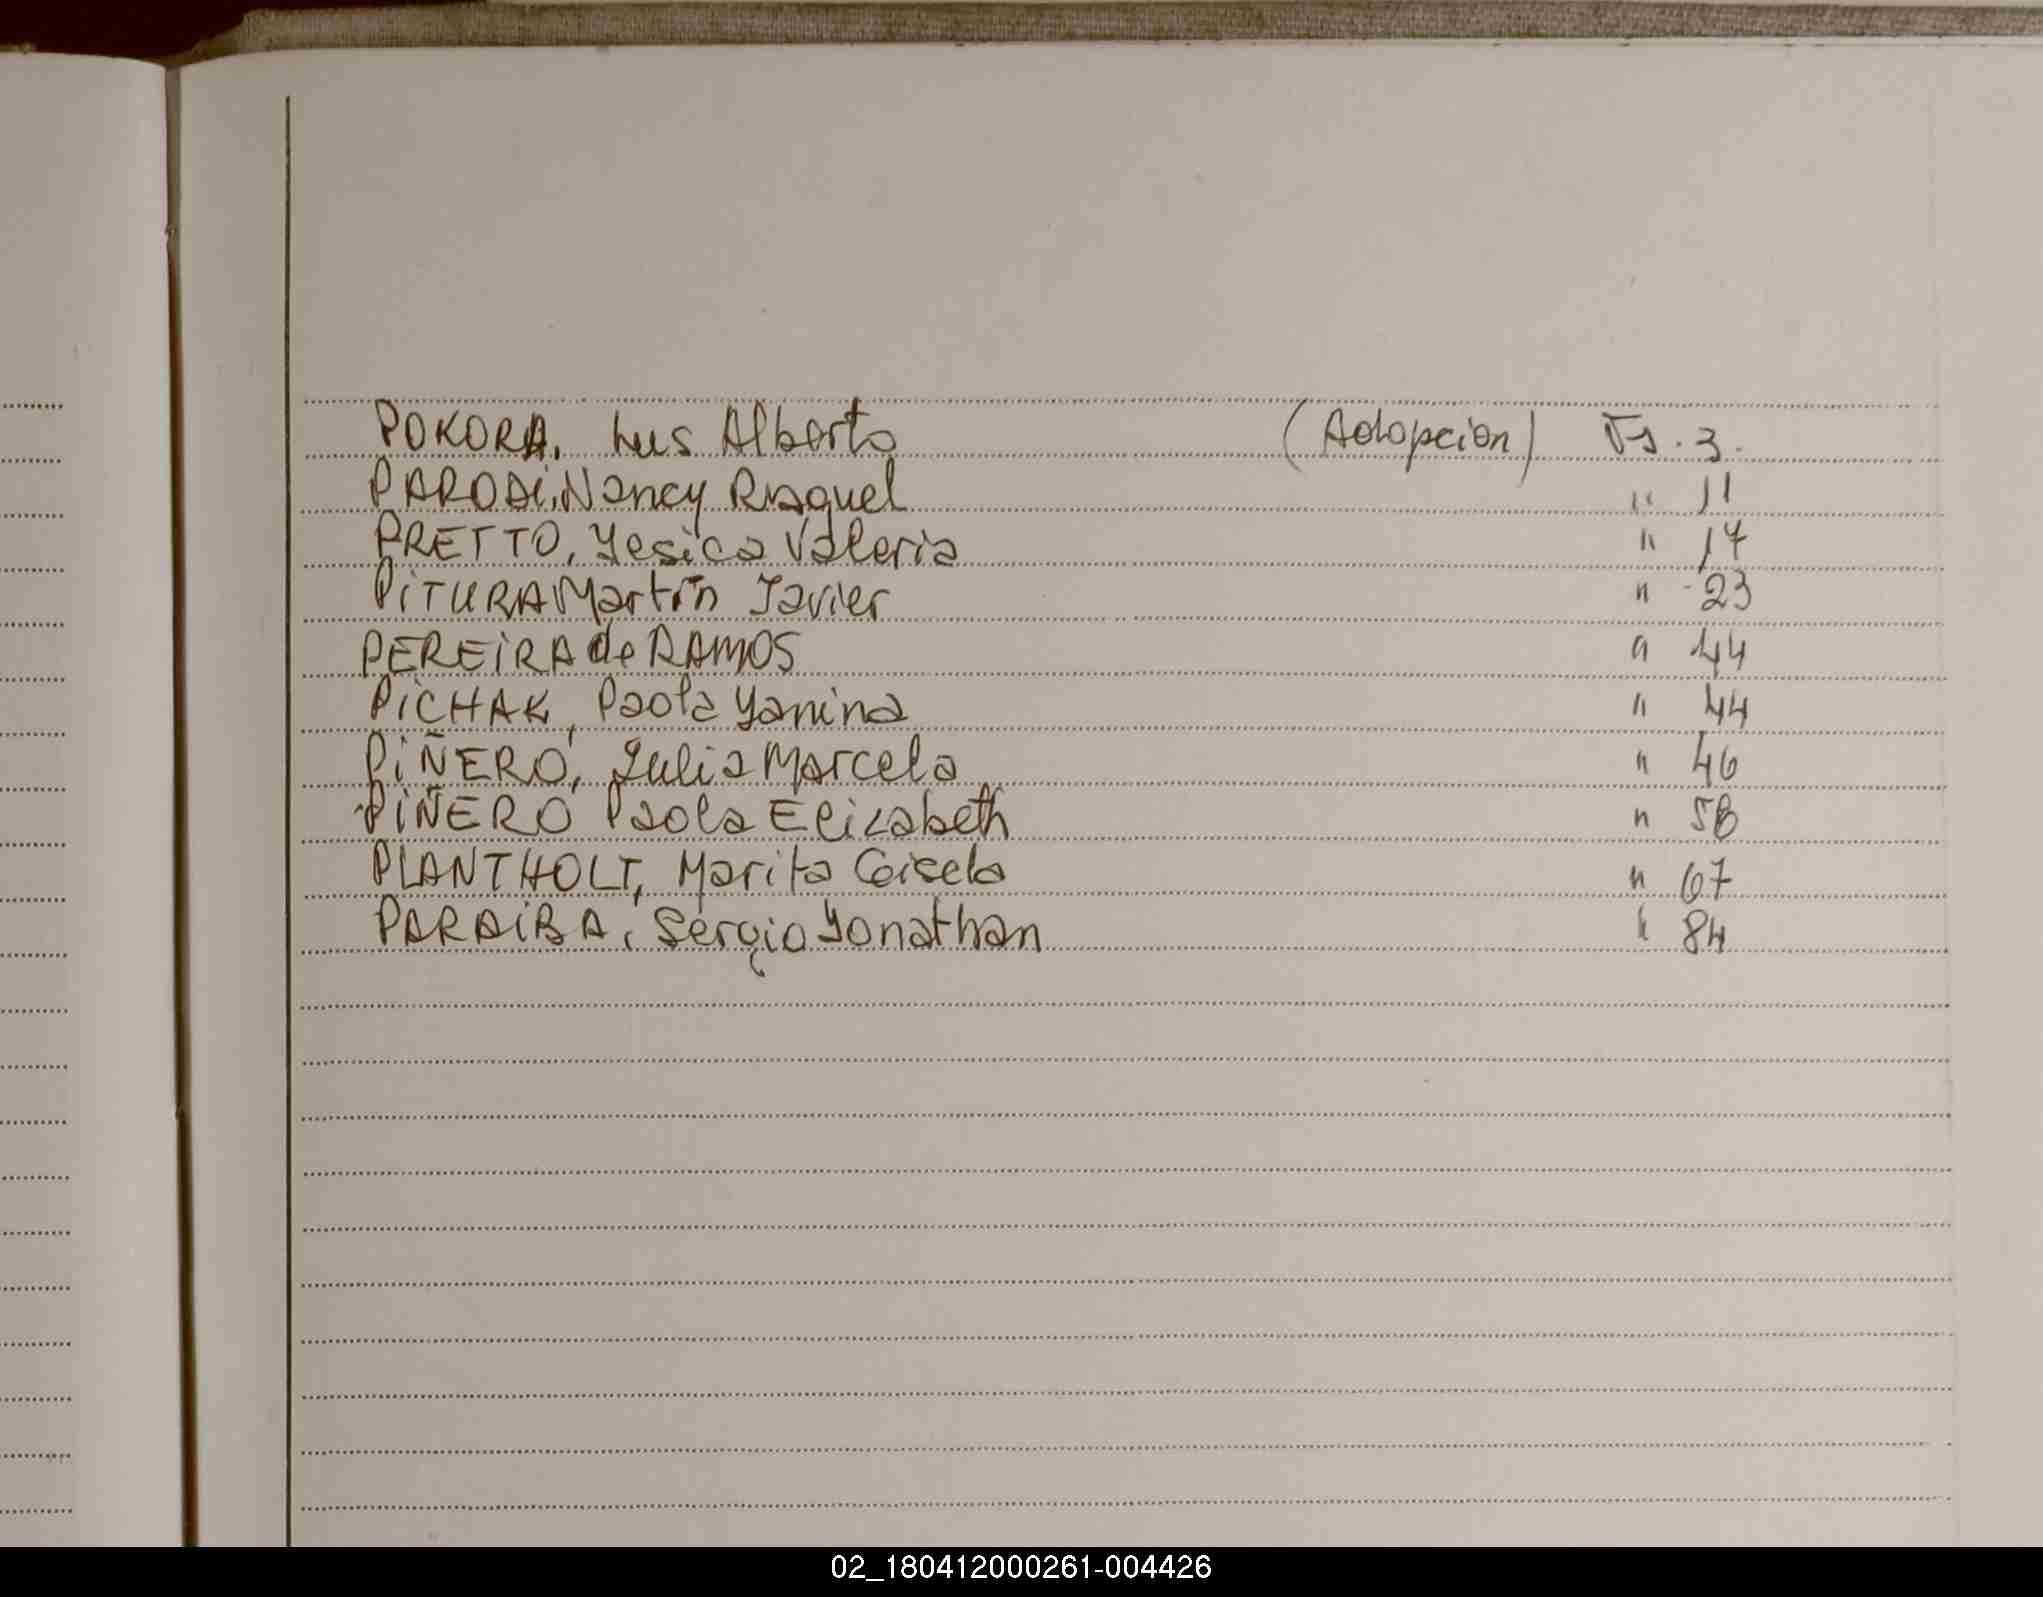 POKORA, Luis Alberto (Adopcion) Fs. 3.
PARODI, Nancy Raquel " 11
PRETTO, Yesica Valeria " 17
PITURA Martín Javier " 23
PEREIRA de RAMOS " 44
PICHAK, Paola Yanina " 44
PIÑERO, Julia Marcela " 46
PIÑERO Paola Elizabeth " 58
PLANTHOLT, Marita Gisela " 67
PARAIBA, Sergio Yonathan " 84
02_180412000261-004426